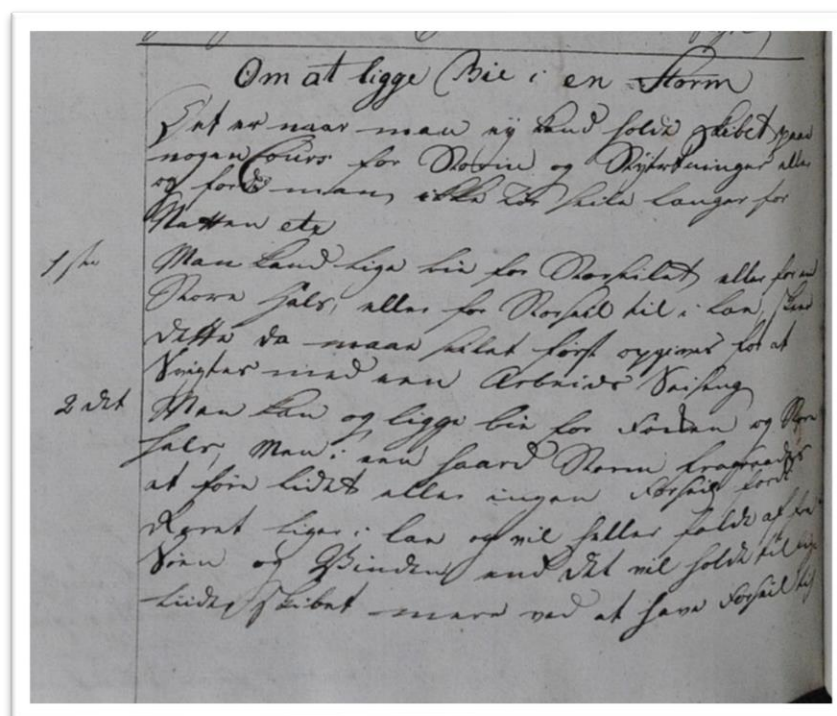 Om at ligge Bie i en Storm
Det er naar man ej kand holde Skibet paa
nogen Cours for Storm og Styrtninger eller
og fordi man ikke tør seile langer for
Natten etc
1ste Man kand lige bie for Storseilet eller for en
Store Hals, eller for Storseil til i Læe, skeer
dette da maae seilet først opgives for at
Svigtes med een Arbeids Seising
2det Man kan og ligge bie for Focken og Store
Hals, Men i een haard Storm
at føre lidet eller ingen Forseil fordi
Roret liger i Læe og vil heller falde af fra
Søen og Vinden end det vil holde til
Skibet mere ved at have Forseil til